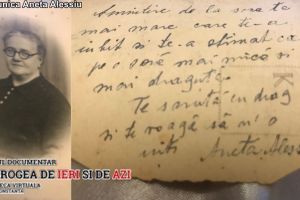 unica Aneta Alessiu
Amintire de la sora ta
mai mare care te-a
iubit si te-a stimat ca
pe o soră mai mică și
mai dragută.
Te sarută cu drag
si te roagă să n'o
uiti Aneta Aless
UL DOCUMENTAR
ROGEA DE IERI SI DE AZI
ECA VIRTUALA
ONSTANTA